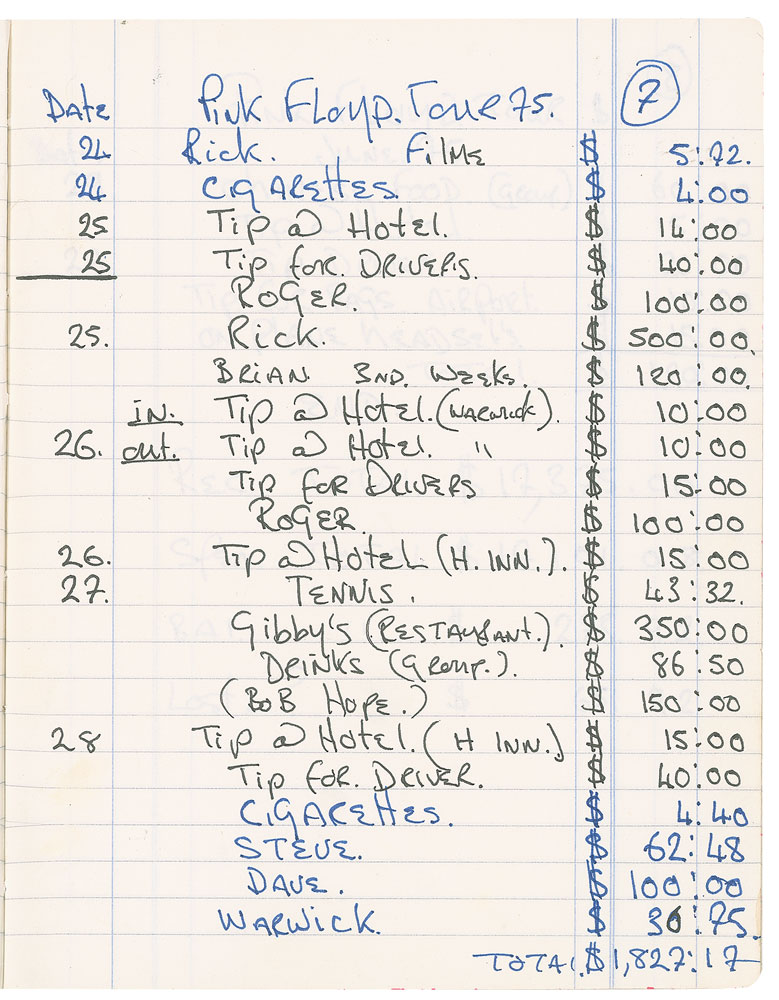 Date Pink Floyd. Tour 75. 7
24 Rick. Films $ 5:72.
24 CIGARETTES. $ 4:00
25 Tip @ Hotel. $ 14:00
25 Tip for. DRIVERS. $ 40:00
ROGER. $ 100:00
25. Rick. $ 500:00.
BRIAN 3ND. Weeks. $ 120:00.
in. Tip @ Hotel. (WARWICK). $ 10:00
26. out. Tip @ Hotel. " $ 10:00
Tip FOR DRIVERS $ 15:00
ROGER. $ 100:00
26. Tip @ Hotel (H. INN.). $ 15:00
27. TENNIS. $ 43:32.
Gibby's (RESTAURANT.). $ 350:00
DRINKS (Group.). $ 86:50
(BOB Hope.) $ 150:00
28 Tip @ Hotel. (H INN.) $ 15:00
Tip FOR. DRIVER. $ 40:00
CIGARETTES. $ 4:40
STEVE. $ 62:48
DAVE. $ 100:00
WARWICK. $ 36:75.
TOTAL. $ 1,827:17